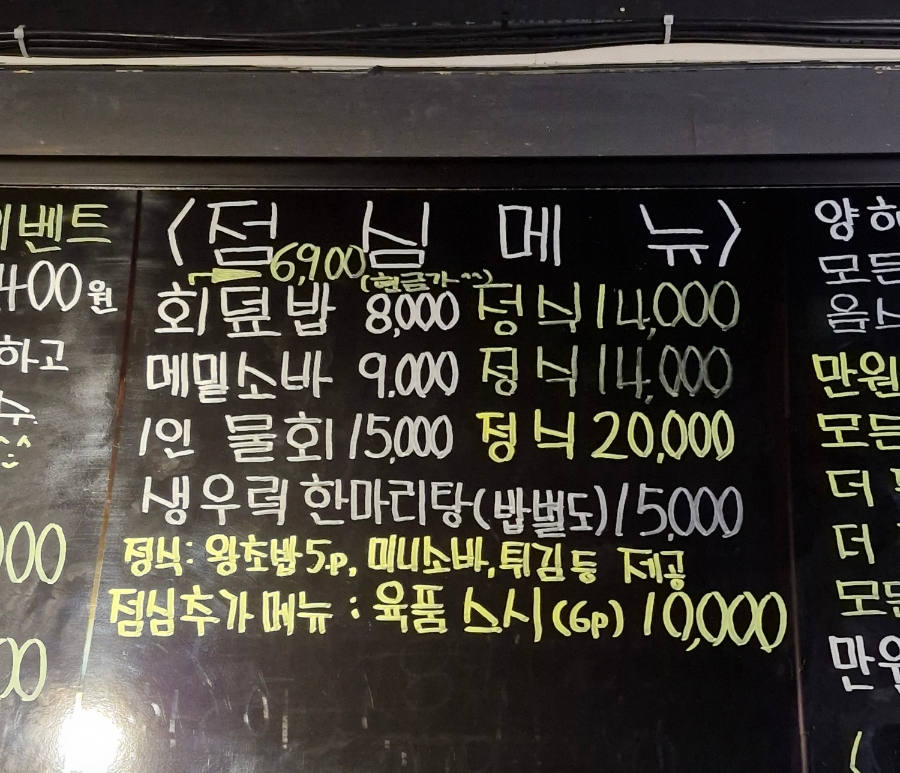 이벤트
400원
하고
수
^^
000
00
<점심 메뉴>
6,900 (현금가^^)
회덮밥 8,000 정식 14,000
메밀소바 9.000 정식 14,000
1인 물회 15,000 정식 20,000
생우럭 한마리탕(밥별도) 15,000
정식: 왕초밥 5.p, 미니소바, 튀김 등 제공
점심추가 메뉴 : 육품 스시 (6p) 10,000
모든
만원
모든
더
더
모든
만원